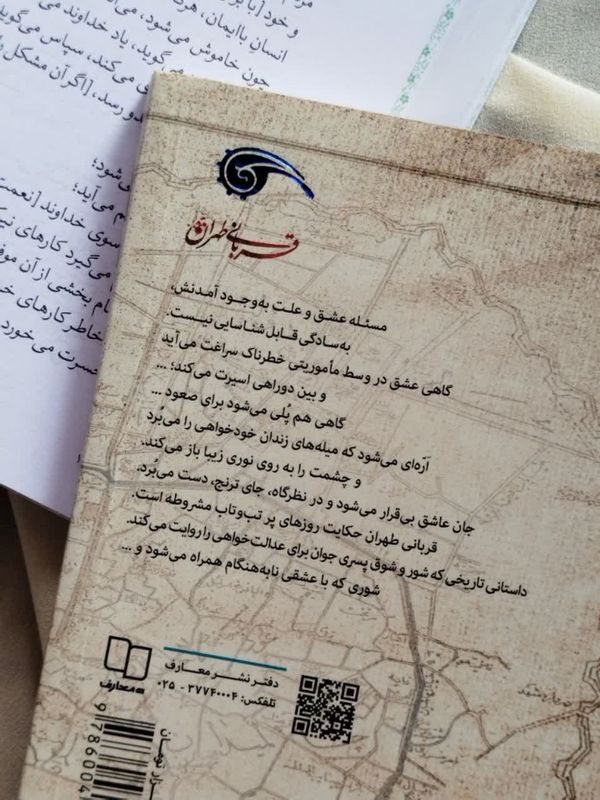 و خود [با بر
انسان باایمان، هر
چون خاموش می‌شود،
می‌گوید، یاد خداوند می
ی می‌کند، سپس می‌گوی
دو رسد، [اگر آن مشکل
ی‌شود؛
م می‌آید؛
سوی خداوند [نعمت
می‌گیرد کارهای نی
ام بخشی از آن موف
خاطر کارهای خ
حسرت می‌خورد
قربانی طهران
مسئله عشق و علت به‌وجود آمدنش،
به‌سادگی قابل شناسایی نیست.
گاهی عشق در وسط مأموریتی خطرناک سراغت می‌آید
و بین دوراهی اسیرت می‌کند؛ ...
گاهی هم پُلی می‌شود برای صعود ...
ارّه‌ای می‌شود که میله‌های زندان خودخواهی را می‌بُرد
و چشمت را به روی نوری زیبا باز می‌کند.
جان عاشق بی‌قرار می‌شود و در نظرگاه، جای ترنج، دست می‌برد.
قربانی طهران حکایت روزهای پر تب‌وتاب مشروطه است.
داستانی تاریخی که شور و شوق پسری جوان برای عدالت‌خواهی را روایت می‌کند.
شوری که با عشقی نابه‌هنگام همراه می‌شود و ...
دفتر نشر معارف
تلفکس: ۳۷۷۴۰۰۰۴ - ۰۲۵
معارف
9786004